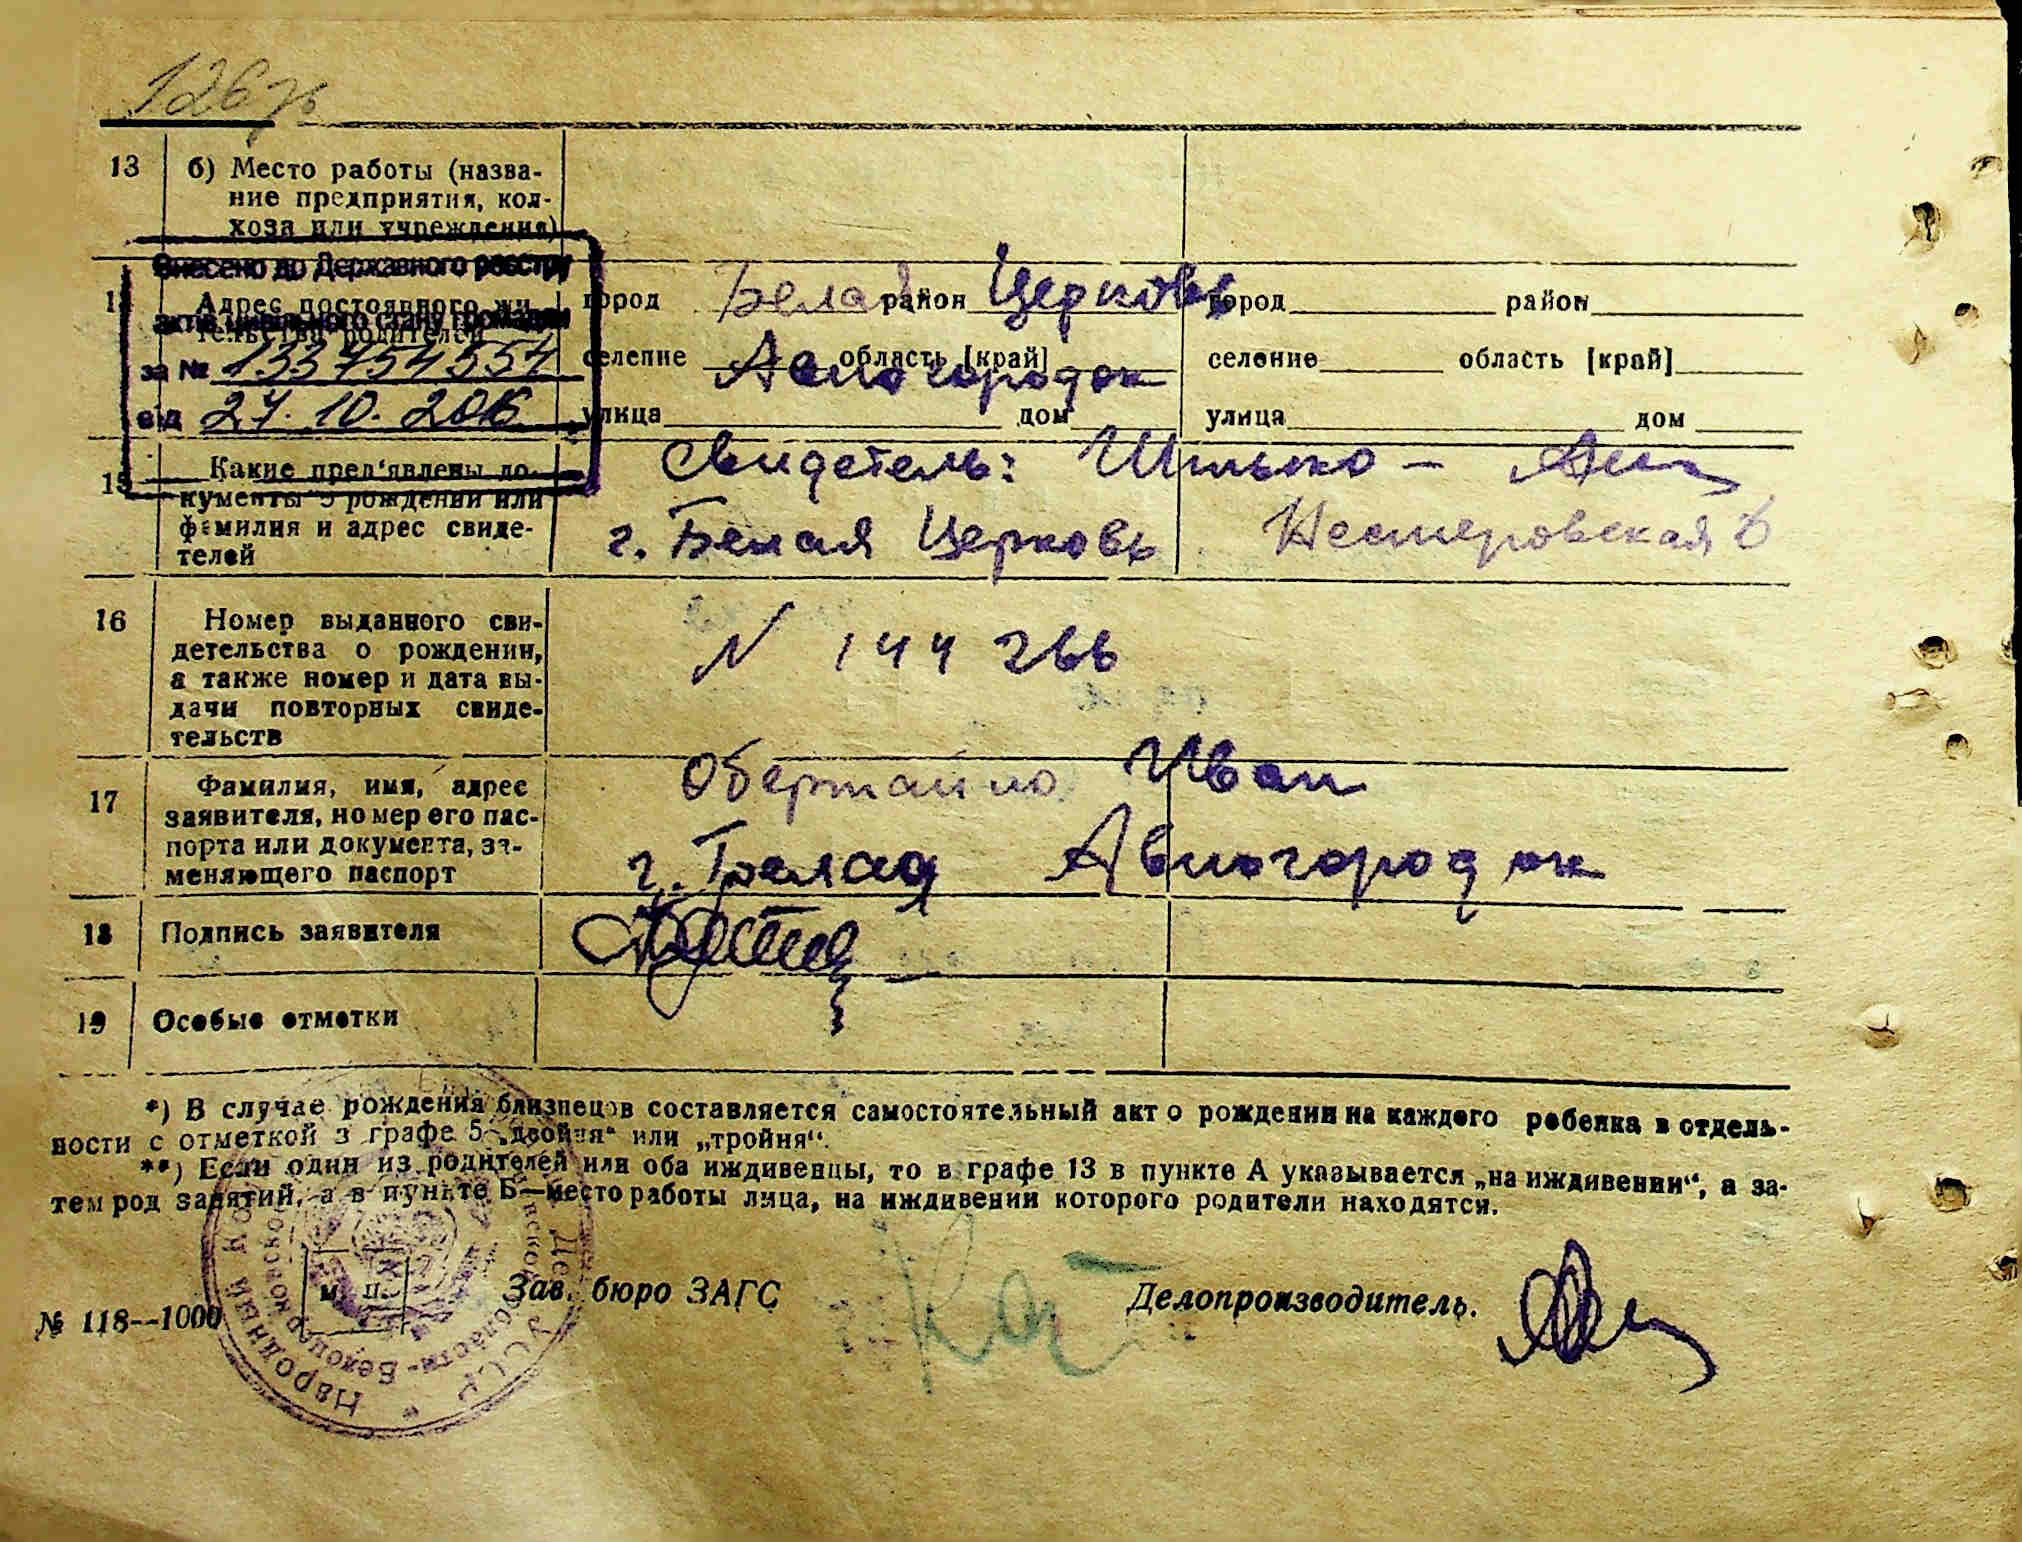 126
13
б) Место работы (назва-
ние предприятия, кол-
хоза или учреждения)
Внесено до Державного реєстру
актів цивільного стану громадян
за № 133754554
від 27.10.2016
Адрес постоянного жи
тельства родителей
город Белая район Церковь
селение область [край]
Авиогородок
улица дом
город район
селение область [край]
улица дом
15
Какие пред'явлены до-
кументы о рождении или
фамилия и адрес свиде-
телей
Свидетель:
г. Белая Церковь Нестеровская 6
16
Номер выданного сви-
детельства о рождении,
а также номер и дата вы-
дачи повторных свиде-
тельств
N 144266
17
Фамилия, имя, адрес
заявителя, номер его пас-
порта или документа, за-
меняющего паспорт
Иван
г. Белая Авиогородок
18
Подпись заявителя
19
Особые отметки
*) В случае рождения близнецов составляется самостоятельный акт о рождении на каждого ребенка в отдель-
ности с отметкой в графе 5 „двойня“ или „тройня“.
**) Если один из родителей или оба иждивенцы, то в графе 13 в пункте А указывается „на иждивении“, а за-
тем род занятий, а в пункте Б—место работы лица, на иждивении которого родители находятся.
м. п.
Зав. бюро ЗАГС
Делопроизводитель.
№ 118--1000
Народный УССР